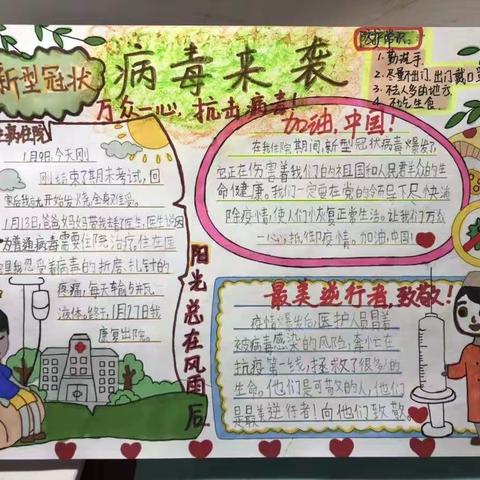 新型冠状
病毒来袭
万众一心,抗击病毒!
防护常识:
1.勤洗手.
2.尽量不出门,出门戴口罩
3.不去人多的地方
4.不吃生食
病住院
1月9日,今天刚
刚结束了期末考试,回
家后我就开始发烧,全身难受。
1月13日,爸爸妈妈带我去看了医生,医生说因
为普通病毒需要住院治疗,住在医
院里我忍受着病毒的折磨、扎针的
疼痛,每天都输5并瓦
液体。终于,1月27日我
康复出院。
阳光总在风雨后
加油,中国!
在我住院期间,新型冠状病毒爆发了,
它正在伤害着我们的祖国和人民群众的生
命健康。我们一定要在党的领导下尽快消
除疫情,使人们恢复正常生活。让我们万众
一心抵御疫情。加油,中国!
最美逆行者,致敬!
疫情爆发后,医护人员冒着
被病毒感染的风险,奋斗在
抗疫第一线,拯救了很多人的
生命。他们是可敬的人,他们
是最美逆行者!向他们致敬。